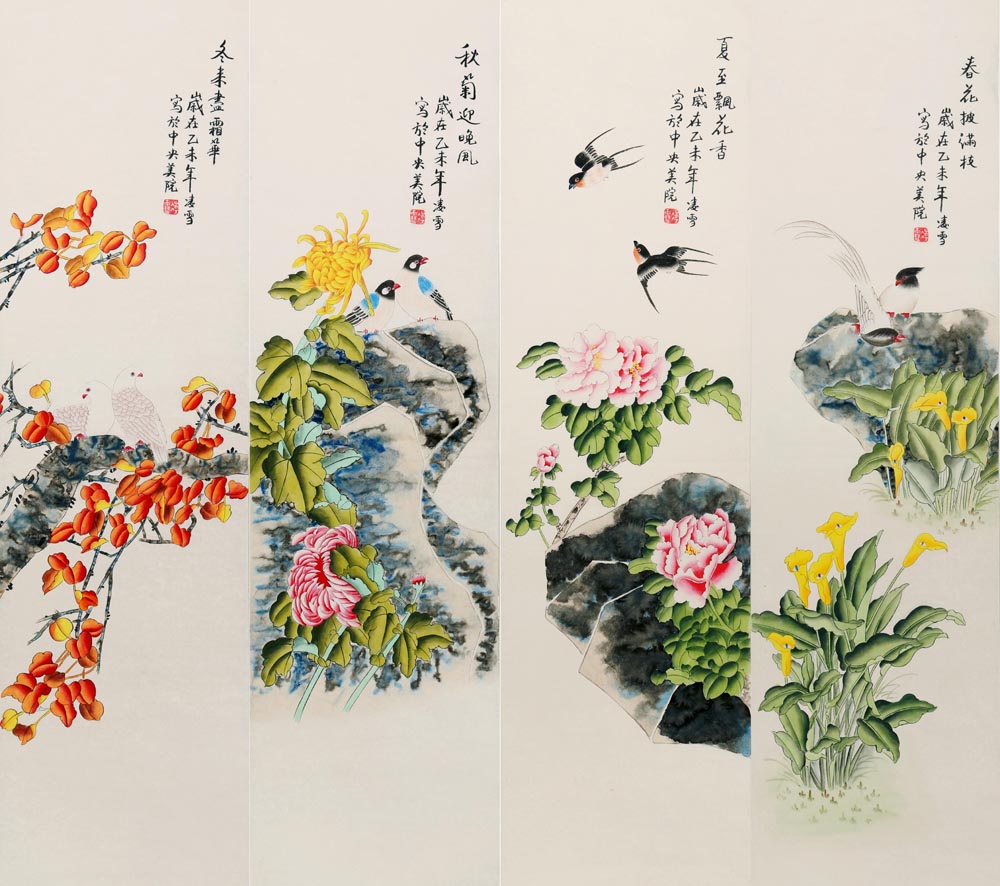 春花披满枝
歲在乙未年凌雪
寫於中央美院
夏至飄花香
歲在乙未年凌雪
寫於中央美院
秋菊迎晚风
歲在乙未年凌雪
寫於中央美院
冬来盡霜華
歲在乙未年凌雪
寫於中央美院